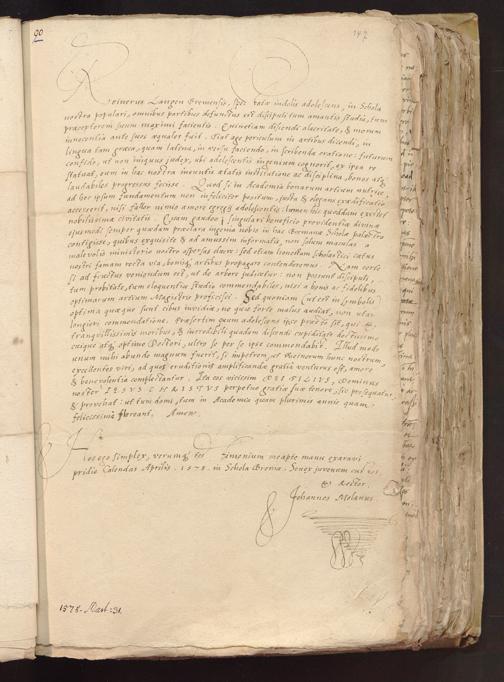 90
147
Reinerus Langen Bremensis, spectatae indolis adolescens, in Schola
nostra populari, omnibus partibus defunctus est discipuli tum amantis studii, tum
praeceptorem suum maximi facientis. Quinetiam discendi alacritate, & morum
innocentia ante suos aequales fuit. Fiat ejus periculum in artibus dicendi, in
lingua tam graeca, quam latina, in versu faciendo, in scribenda oratione: futurum
confido, ut non iniquus judex, ubi adolescentis ingenium cognorit, ex ipsa re
statuat, eum in hac nostra ineuntis aetatis institutione ac disciplina, bonos atq
laudabiles progressus fecisse. Quod si in Academia bonarum artium nutrice,
ad hoc ipsum fundamentum non infeliciter positum, justa & elegans exaedificatio
accesserit, nisi fallor nimio amore gregii adolescentis: lumen hic quoddam existet
nobilissimae civitati. Quam gaudeo singulari beneficio providentiae divinae
ejusmodi semper quaedam praeclara ingenia nobis in hac Bremana Schola
contigisse, quibus exquisite & ad amussim informatis, non solum maculas a
malevolis ministerio nostro aspersas elueret: sed etiam honestum scholastici coetus
nostri famam recta via, bonisq artibus propagare contenderemus. Nam certe
si ad fructus veniendum est, ut de arbore judicetur: non possunt discipuli,
tum probitate, tum eloquentiae studio commendabiles, nisi a bonis ac fidelibus
optimarum artium Magistris proficisci. Sed quoniam (ut est in symbolis)
optima quaeque sunt cibus invidiae, ne quis forte malus audiat, non utar
longiori commendatione. Praesertim quum adolescens ipse praesto sit, qui &
tranquillissimis moribus, & incredibili quadam discendi cupiditate doctissimo
cuique atq optimo Doctori, ultro se per se ipse commendabit. Illud modo
unum mihi abunde magnum fuerit, si impetrem, ut Reinerum hunc nostrum,
excellentes viri, ad quos eruditionis amplificandae gratia venturus est, amore
& benevolentia complectantur. Ita eos vicissim DEI FILIUS, Dominus
noster IESUS CHRISTUS perpetuo gratiae suae tenore, sic prosequatur,
& provehat: ut tum domi, tum in Academia quam plurimis annis quam
felicissime floreant. Amen.
Hoc ego simplex, verumq testimonium meapte manu exaravi
pridie Calendas Aprilis. 1578. in Schola Brema. Senex juvenum
& Rector.
Johannes Molanus.
1578. Mart. 31.